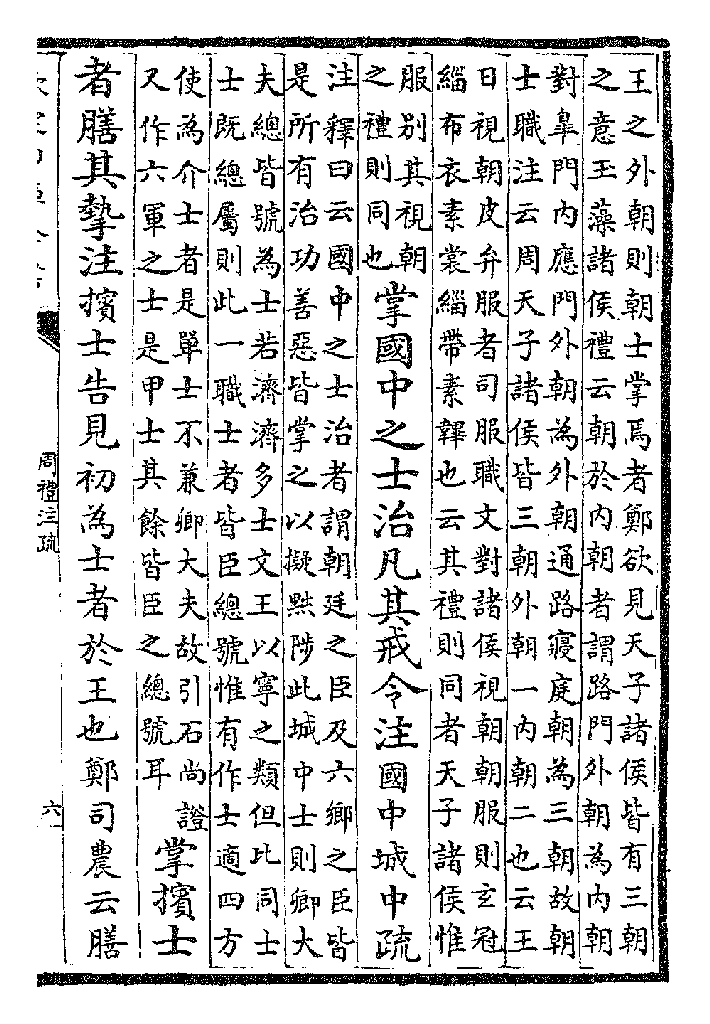 王之外朝則朝士掌焉者鄭欲見天子諸侯皆有三朝
之意王藻諸侯禮云朝於内朝者謂路門外朝為内朝
對臯門内應門外朝為外朝通路寢庭朝為三朝故朝
士職注云周天子諸侯皆三朝外朝一内朝二也云王
日視朝皮弁服者司服職文對諸侯視朝朝服則玄冠
緇布衣素裳緇帶素韠也云其禮則同者天子諸侯惟
服别其視朝
之禮則同也
掌國中之士治凡其戒令注國中城中疏
注釋曰云國中之士治者謂朝廷之臣及六鄉之臣皆
是所有治功善惡皆掌之以擬黜陟此城中士則卿大
夫總皆號為士若濟濟多士文王以寧之類但此同士
士既總屬則此一職士者皆臣總號惟有作士適四方
使為介士者是單士不兼卿大夫故引石尚證
又作六軍之士是甲士其餘皆臣之總號耳
掌擯士
者膳其摯注擯士告見初為士者於王也鄭司農云膳
周禮注疏
六